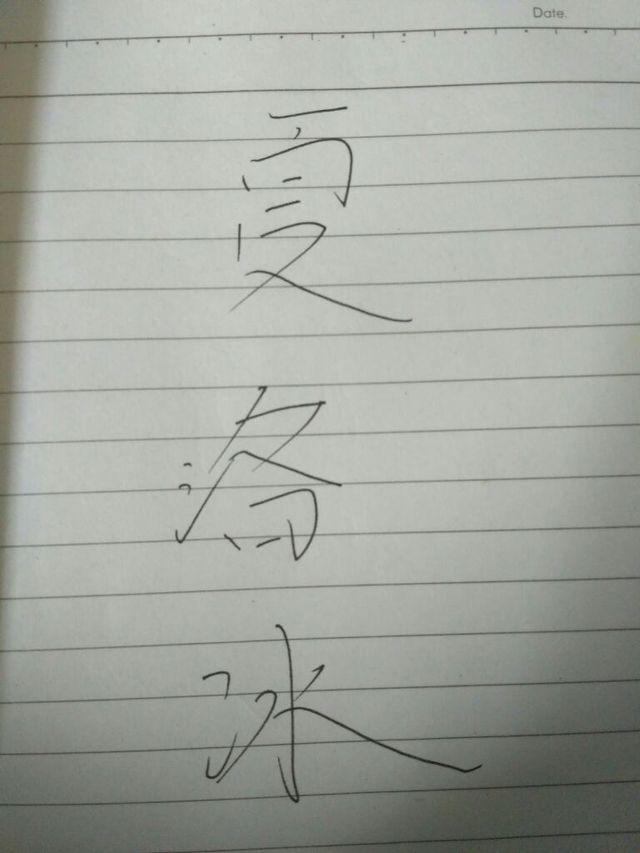 Date.
夏
洛
冰